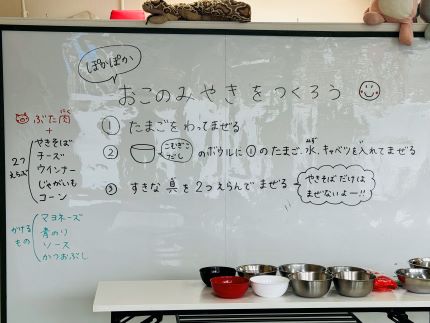 ぽかぽか
おこのみやきをつくろう
① たまごをわってまぜる
② こむぎこ だし のボウルに①のたまご、水、キャベツを入れてまぜる
みず
い
③ すきな具を2つえらんでまぜる
やきそばだけは
まぜないよー!!
ぶた肉
にく
+
2つ
えらぶ
やきそば
チーズ
ウインナー
じゃがいも
コーン
かける
もの
マヨネーズ
青のり
ソース
かつおぶし